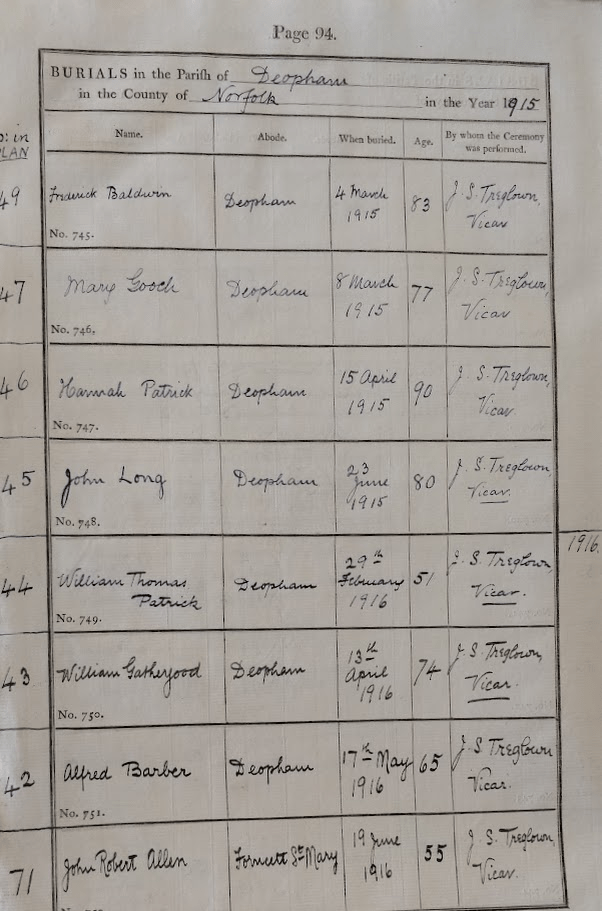 Page 94.
BURIALS in the Parish of Deopham
in the County of Norfolk in the Year 1915
in
PLAN
Name. Abode. When buried. Age. By whom the Ceremony
was performed.
49 Frederick Baldwin Deopham 4 March
1915 83 J. S. Treglown,
Vicar
No. 745.
47 Mary Gooch Deopham 8 March
1915 77 J. S. Treglown,
Vicar
No. 746.
46 Hannah Patrick Deopham 15 April
1915 90 J. S. Treglown,
Vicar
No. 747.
45 John Long Deopham 23
June
1915 80 J. S. Treglown,
Vicar.
No. 748.
1916.
44 William Thomas
Patrick Deopham 29th
February
1916 51 J. S. Treglown,
Vicar.
No. 749.
43 William Gathergood Deopham 13th
April
1916 74 J. S. Treglown,
Vicar.
No. 750.
42 Alfred Barber Deopham 17th May
1916 65 J. S. Treglown
Vicar.
No. 751.
71 John Robert Allen Forncett St Mary 19 June
1916 55 J. S. Treglown,
Vicar.